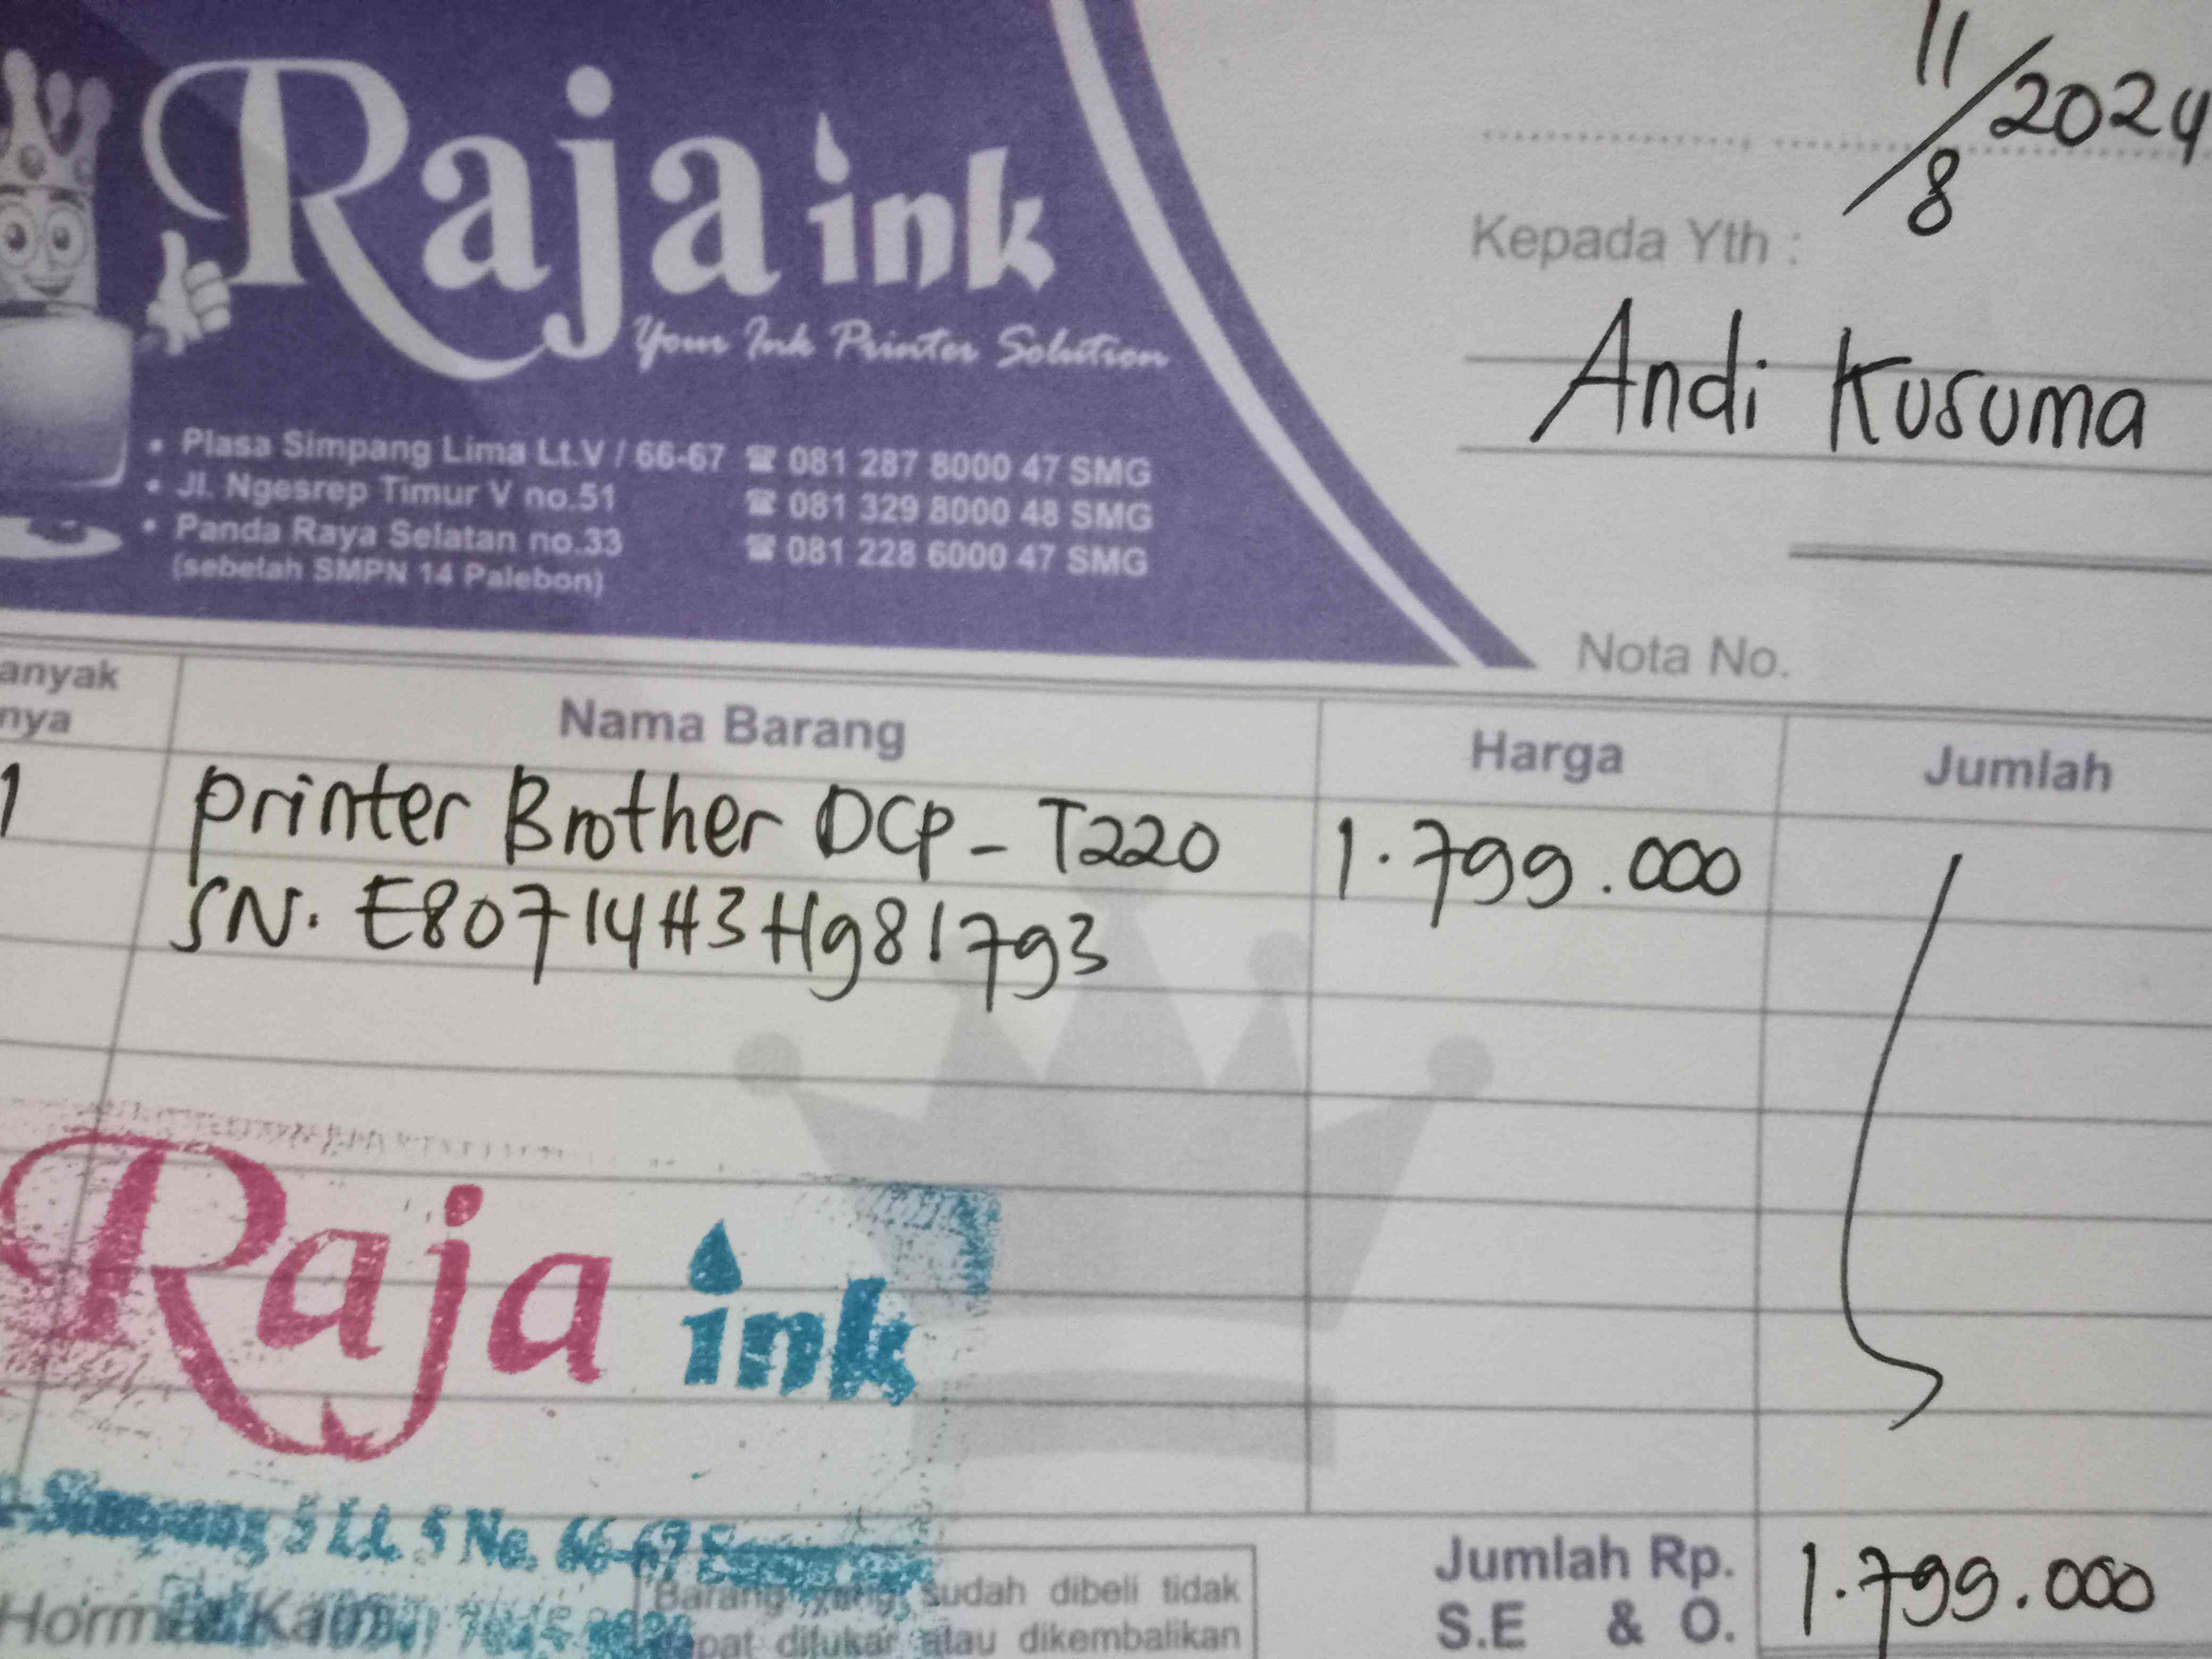 Raja ink
Your Ink Printer Solution
• Plasa Simpang Lima Lt.V / 66-67 ☎ 081 287 8000 47 SMG
• Jl. Ngesrep Timur V no.51 ☎ 081 329 8000 48 SMG
• Panda Raya Selatan no.33 ☎ 081 228 6000 47 SMG
(sebelah SMPN 14 Palebon)
11/8 2024
Kepada Yth :
Andi Kusuma
Nota No.
anyak
nya
Nama Barang
Harga
Jumlah
1 printer Brother DCP-T220 1.799.000
SN. E80714H3H981793
Raja ink
Simpang 5 Lt. 5 No. 66-67
Hormat Kami
Barang yang sudah dibeli tidak
apat ditukar atau dikembalikan
Jumlah Rp. 1.799.000
S.E & O.